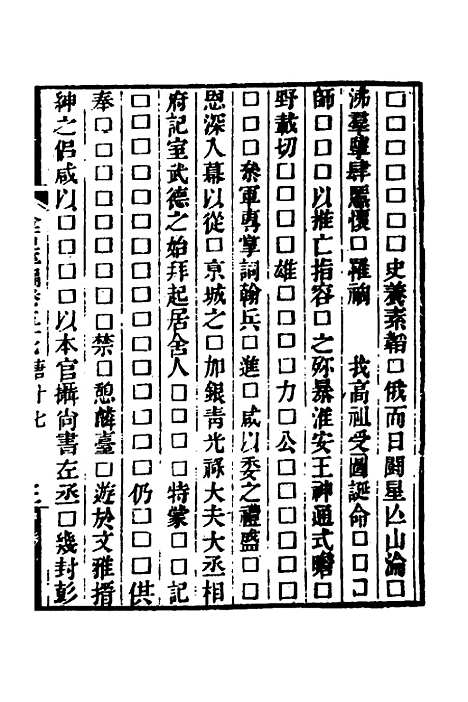 □□□□□□□□史養素韜□俄而日鬭星亾山淪□
沸羣肆懷□罹禍　我高祖受圖誕命□□□
師□□□□以推亡指容□之殄暴淮安王神通式瞻□
野載切□□□雄□□□□力□公□□□□□□□
□□□□叅軍專掌詞翰兵□進□咸以委之禮盛□□
恩深入幕以從□京城之□加銀青光祿大夫大丞相
府記室武德之始拜起居舍人□□□□□特蒙□□記
□□□□□□□□□□□□□□□□仍□□□□供
奉□□□□□□□□□禁□憩麟臺□遊於文雅搢
紳之侶咸以□□□□□以本官攝尚書左丞□幾封彭
唐十七